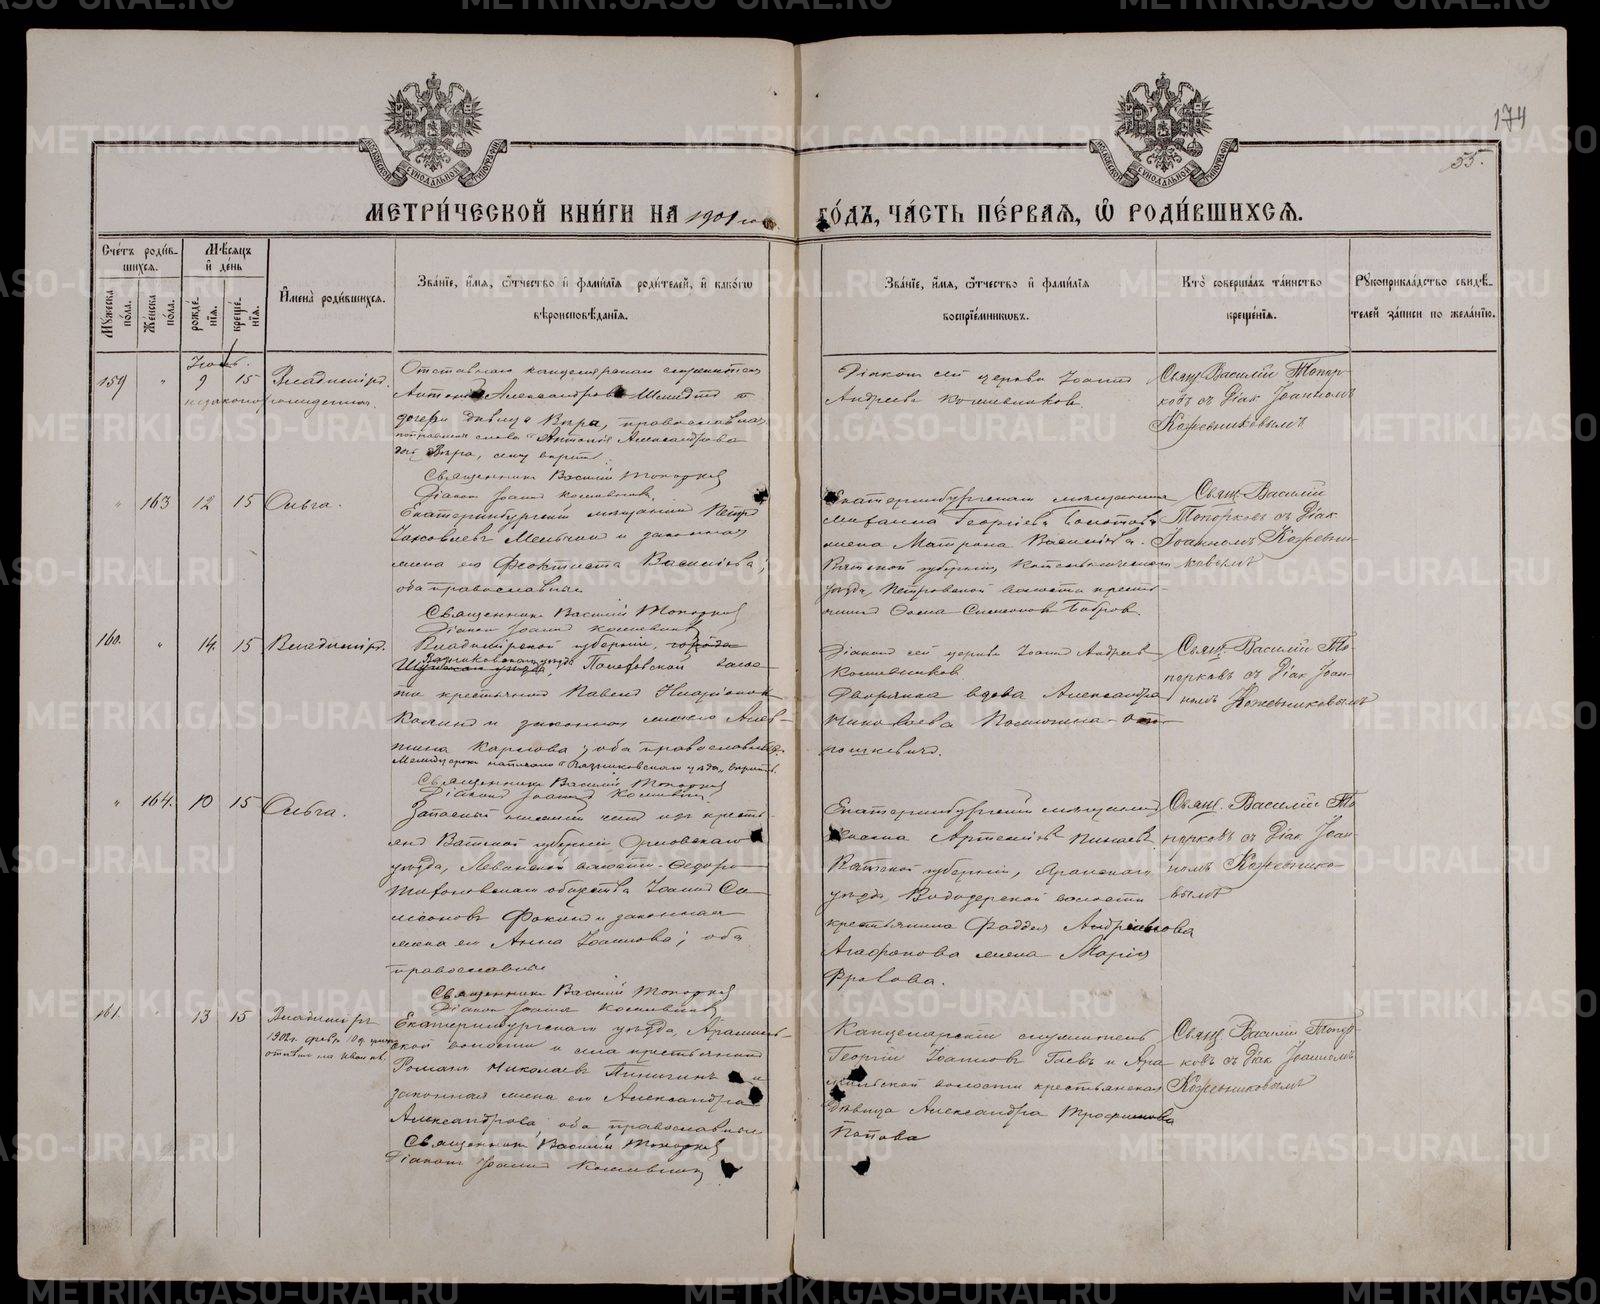 174
55.
МОСКОВСКОЙ СѴНОДАЛЬНОЙ ТИПОГРАФІИ
МОСКОВСКОЙ СѴНОДАЛЬНОЙ ТИПОГРАФІИ
МЕТРИ́ЧЕСКОЙ КНИ́ГИ НА 1901 го
ГО́ДЪ, ЧА́СТЬ ПЕ́РВАЯ, Ѡ РОДИ́ВШИХСЯ.
Сче́тъ роди́в-
шихся.
Му́жеска по́ла.
Же́нска по́ла.
Мѣ́сяцъ и де́нь
рожде́нїя.
креще́нїя.
И҆мена̀ роди́вшихся.
Зва́нїе, и҆́мя, ѻ҆́тчество и҆ фами́лїя роди́телей, и҆ како́гѡ
вѣроисповѣ́данїя.
Зва́нїе, и҆́мя, ѻ҆́тчество и҆ фами́лїя
воспрїе́мниковъ.
Кто̀ соверша́лъ та́инство
креще́нїя.
Рукоприкла́дство свидѣ́-
телей за́писи по жела́нїю.
Іюнь.
159 " 9 15 Владиміръ.
незаконорожденный.
Отставнаго канцелярскаго служителя
Антонія Александрова Шмидтъ
дочери дѣвица Вѣра, православная
Александрова
Вѣра, сему вѣрить.
Священникъ Василій Топорковъ
Діаконъ Іоаннъ Кожевниковъ
Діаконъ сей церкви Іоаннъ
Андреевъ Кожевниковъ.
Свящ. Василій Топор-
ковъ съ Діак Іоанномъ
Кожевниковымъ
" 163 12 15 Ольга.
Екатеринбургскій мѣщанинъ Петръ
Іаковлевъ и законная
жена его Феоктиста Василіева;
оба православные
Священникъ Василій Топорковъ
Діаконъ Іоаннъ Кожевниковъ
Екатеринбургскаго мѣщанина
Михаила Георгіева Болотова
жена Матрона Василіева.
Вятской губерніи, Котельническаго
уѣзда, Петровской волости кресть-
янинъ Симеоновъ Бобровъ.
Свящ. Василій
Топорковъ съ Діак
Іоанномъ Кожевни-
ковымъ
160. " 14. 15 Владиміръ.
Владимірской губерніи, города
Вязниковскаго уѣзда
Шуйскаго уѣзда, воло-
сти крестьянинъ Павелъ Иларіоновъ
и законная жена его
Карпова; оба православные.
Между строкъ написано "Вязниковскаго уѣзда" вѣрить.
Священникъ Василій Топорковъ
Діаконъ Іоаннъ Кожевниковъ
Діаконъ сей церкви Іоаннъ Андреевъ
Кожевниковъ
Дворянка вдова Александра
Николаева
Свящ. Василій То-
порковъ съ Діак Іоан-
номъ Кожевниковымъ
" 164. 10 15 Ольга.
Запасный нижній чинъ изъ кресть-
янъ Вятской губерніи Орловскаго
уѣзда, Левановской волости
общества Іоаннъ Си-
меоновъ Фокинъ и законная
жена его Анна Іоаннова; оба
православные
Священникъ Василій Топорковъ
Діаконъ Іоаннъ Кожевниковъ
Екатеринбургскій мѣщанинъ
Артеміевъ
Вятской губерніи, Яранскаго
уѣзда, Водозерской волости
крестьянина Фаддея Андреянова
Агафонова жена Марія
Фролова.
Свящ. Василій То-
порковъ съ Діак Іоан-
номъ Кожевнико-
вымъ
161. " 13 15 Владиміръ
Екатеринбургскаго уѣзда, Арамиль-
ской волости и села крестьянинъ
Романъ Николаевъ и
законная жена его Александра
Александрова; оба православные
Священникъ Василій Топорковъ
Діаконъ Іоаннъ Кожевниковъ
Канцелярскій служитель
Георгій Іоанновъ Гаевъ и Ара-
мильской волости крестьянская
дѣвица Александра Трофимова
Попова
Свящ Василій Топор-
ковъ съ Діак Іоанномъ
Кожевниковымъ
METRIKI.GASO-URAL.RU